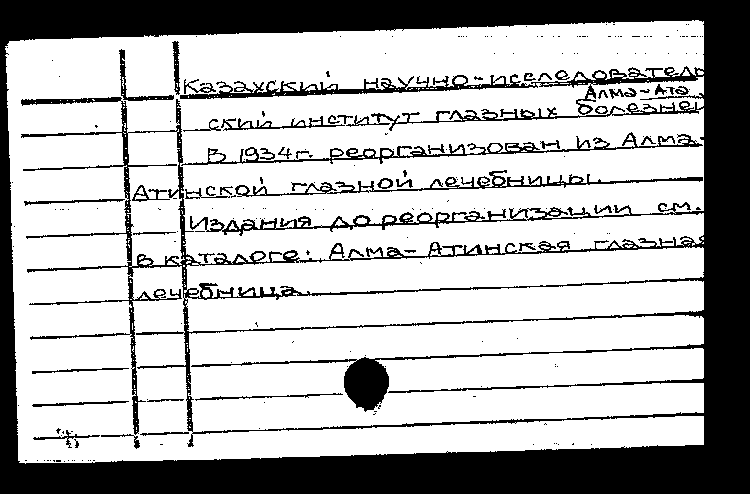 Казахский научно-исследователь
Алма-Ата.
ский институт глазных болезней
В 1934г. реорганизован из Алма-
Атинской глазной лечебницы.
Издания до реорганизации см.
в каталоге: Алма-Атинская глазная
лечебница.